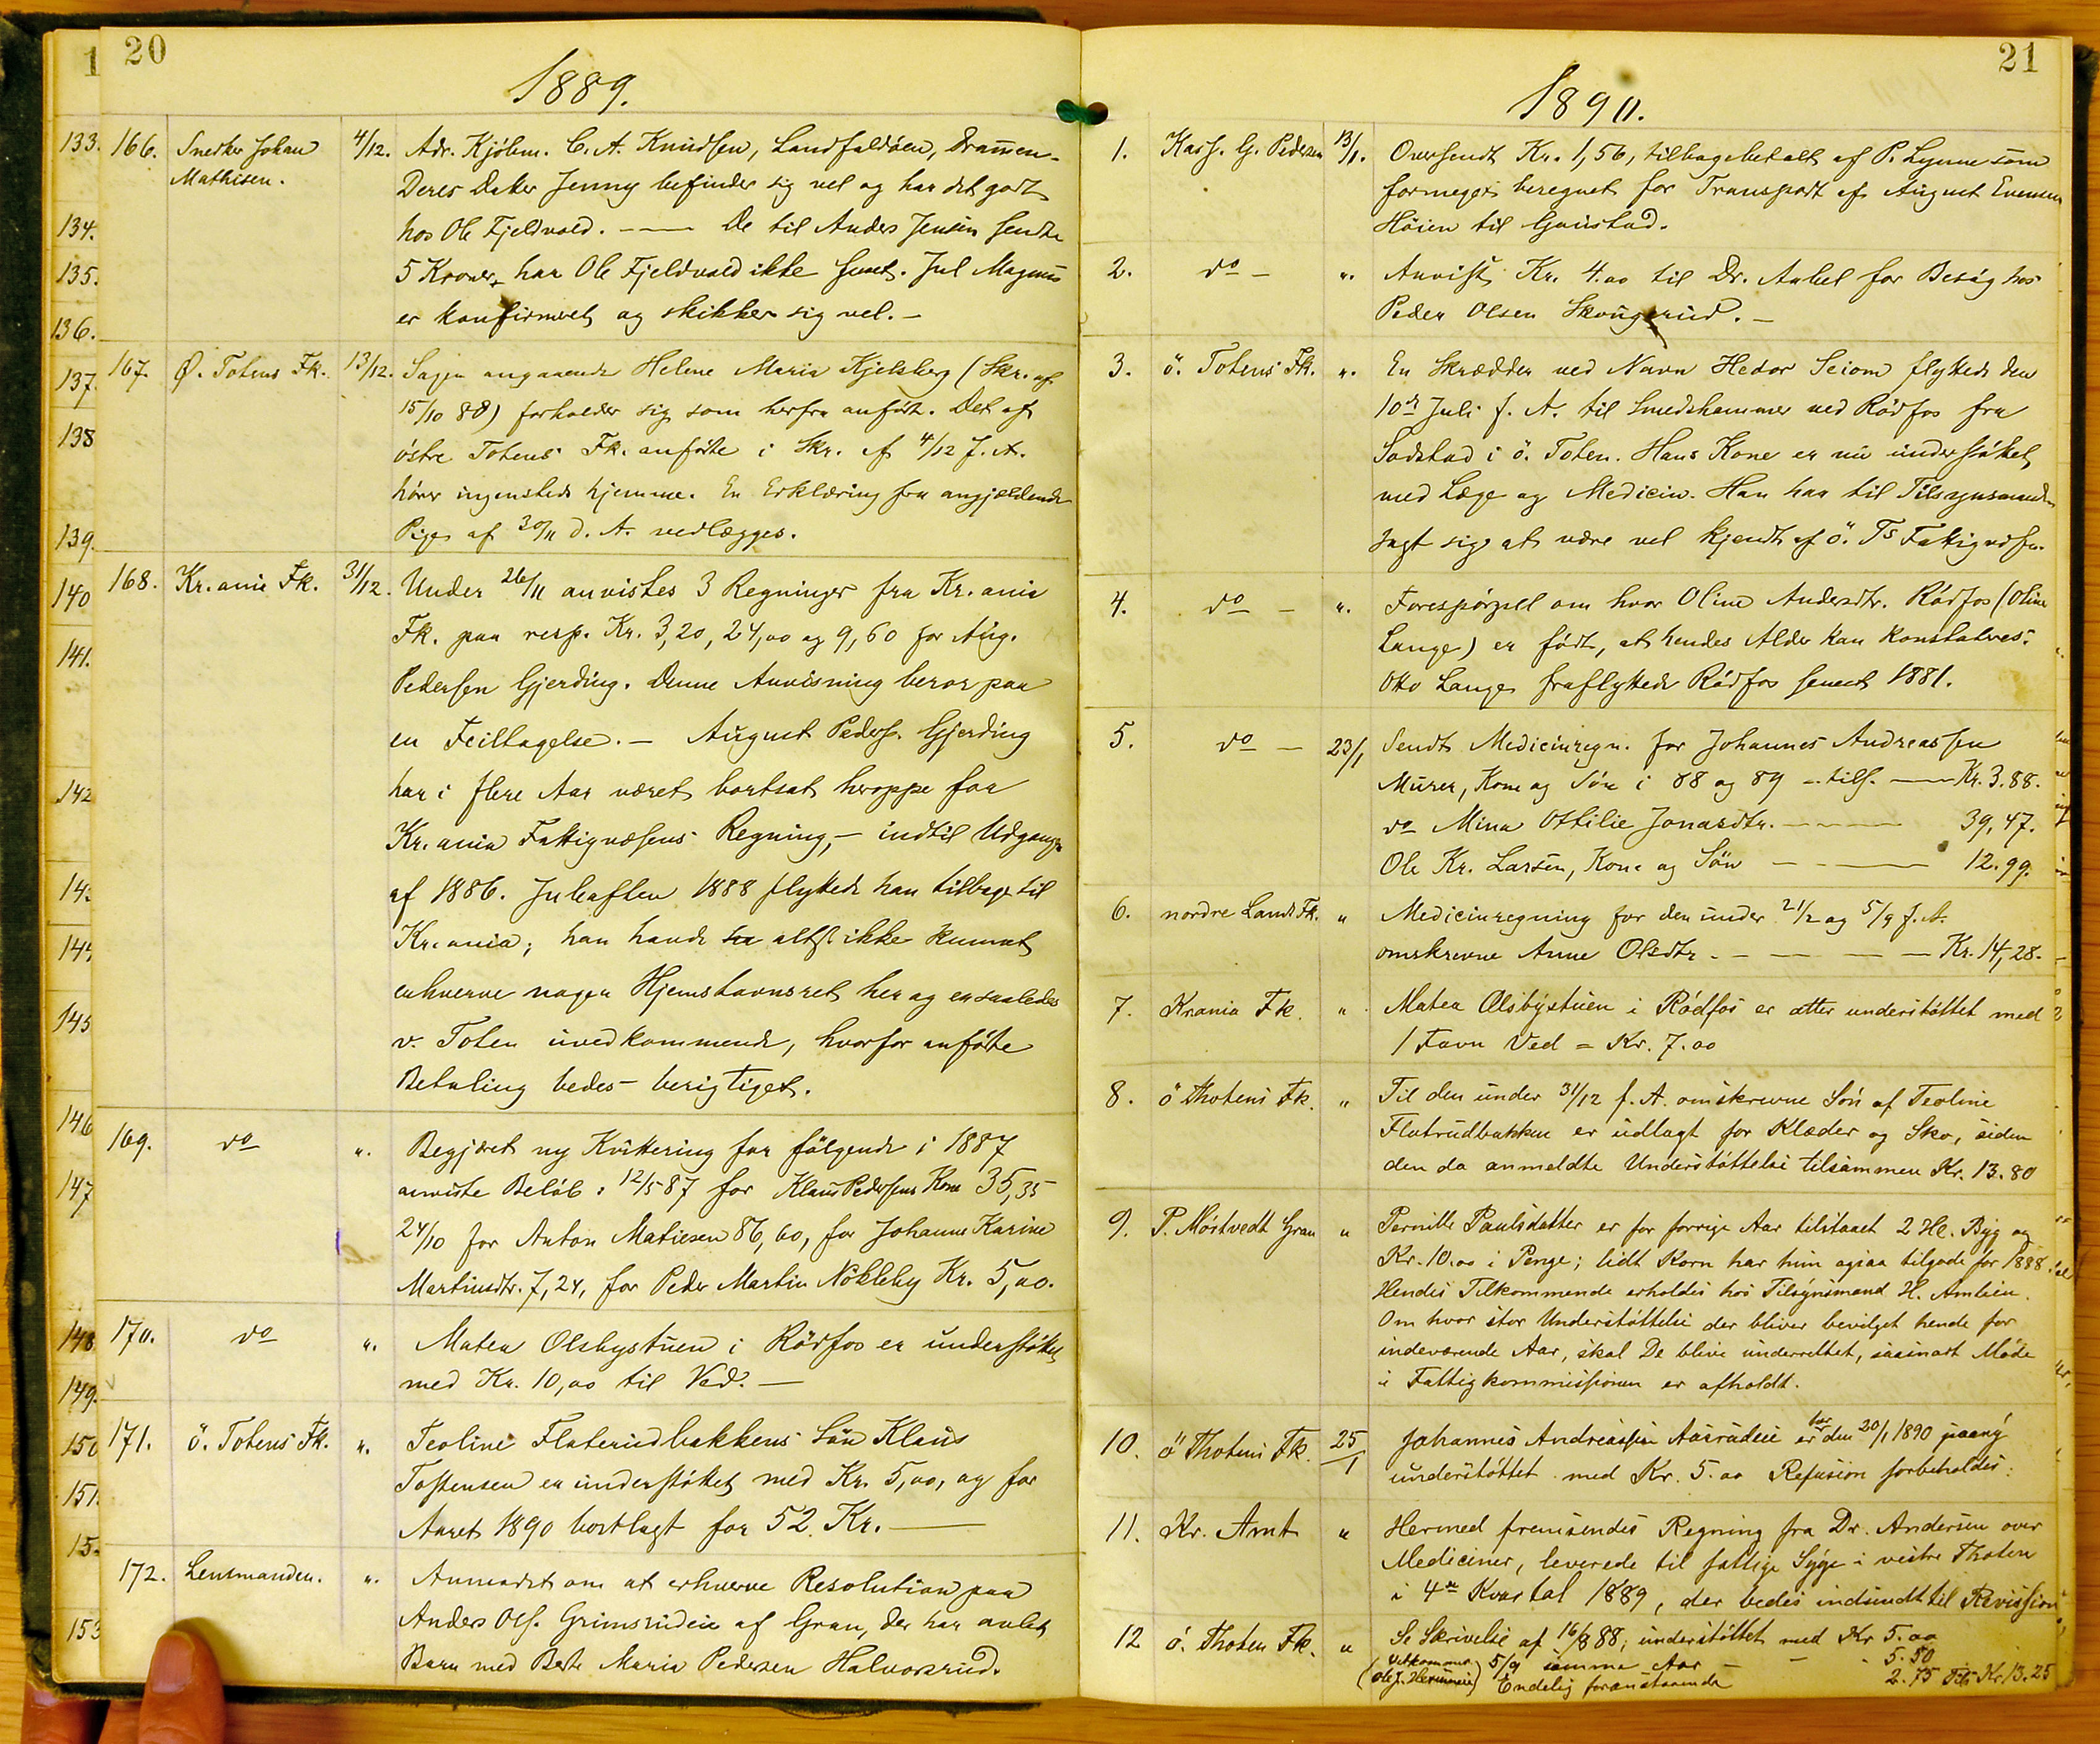 20
1889.
166. Snedker Johan Mathisen. 4/12. Adr. Kjöbm. C. A. Knudsen, Landfaldöen, Drammen.
Deres Datter Jenny befinder sig vel og har det godt
hos Ole Fjeldvold. — De til Anders Jensen sendte
5 Kroner, har Ole Fjeldvold ikke faaet. Jul Magnus
er konfirmeret og skikker sig vel. —
167. Ø. Totens Fk. 13/12. Sagen angaaende Helene Maria Kjelsberg (Skr. af
15/10 88) forholder sig som herfra anført. Det af
östre Totens Fk. anførte i Skr. af 4/12 f. A.
hörer ingensteds hjemme. En Erklæring fra angjældende
Pige af 30/11 d. A. vedlægges.
168. Kr.ania Fk. 31/12. Under 26/11 anvistes 3 Regninger fra Kr.ania
Fk. paa resp. Kr. 3,20, 24,00 og 9,60 for Aug.
Pedersen Gjerding. Denne Anvisning beror paa
en Feiltagelse. — August Peders. Gjerding
har i flere Aar været bortsat heroppe for
Kr.ania Fattigvæsens Regning, — indtil Udgangen
af 1886. Juleaften 1888 flyttede han tilbage til
Kr.ania; han havde altsaa ikke kunnet
erhverve nogen Hjemstavnsret her og er saaledes
v. Toten uvedkommende, hvorfor anførte
Betaling bedes berigtiget.
169. do ". Begjæret ny Kvittering for fölgende i 1887
anviste Belöb: 12/5 87 for Klaus Pedersens Kone 35,35
24/10 for Anton Matiesen 86,60, for Johanne Karine
Martinsdtr. 7,24, for Peder Martin Nökleby Kr. 5,00.
170. do ". Matea Olsbystuen i Rödfos er understöttet
med Kr. 10,00 til Ved. —
171. ö. Totens Fk. ". Teoline Flaterudbakkens Sön Klaus
Tostensen er understöttet med Kr. 5,00, og for
Aaret 1890 bortlagt for 52 Kr. —
172. Lensmanden. ". Anmodet om at erhverve Resolution paa
Anders Ols. Grimsrudeie af Gran, der har avlet
Barn med Berte Maria Pedersen Halvorsrud.
133.
134.
135.
136.
137.
138
139.
140
141.
142
145
146
147
148
149.
150
151.
153
21
1890.
1. Kass. G. Pedersen 13/1. Oversendt Kr. 1,56, tilbagebetalt af P. Lynne som
formeget beregnet for Transport af August Evensen
Höien til Gaustad.
2. do — ". Anvist Kr. 4.00 til Dr. Aubel for Besög hos
Peder Olsen Skougerud. —
3. ö. Totens Fk. ". En Skrædder ved Navn Hedor Seiom flyttede den
10de Juli f. A. til Smedshammer ved Rödfos fra
Sodstad i ö. Toten. Hans Kone er nu understöttet
med Læge og Medicin. Han har til Tilsynsmanden
sagt sig at være vel kjendt af ö. Ts Fattigvæsen.
4. do — ". Forespörgsel om hvor Oline Andersdtr. Rödfos (Oline
Lange) er födt, at hendes Alder kan konstateres.
Otto Lange fraflyttede Rödfos senest 1881.
5. do — 23/1 Sendt Medicinregn. for Johannes Andreassen
Murer, Kone og Sön i 88 og 89 — tils. — Kr. 3.88.
do Mina Ottilie Jonasdtr. — 39,47.
Ole Kr. Larsen, Kone og Sön — 12.99.
6. nordre Lands Fk. " Medicinregning for den under 21/2 og 5/9 f. A.
omskrevne Anne Olsdtr. — Kr. 14,28.
7. Krania Fk. " Matea Olsbystuen i Rödfos er atter understöttet med
1 Favn Ved = Kr. 7.00
8. ö Thotens Fk. " Til den under 31/12 f. A. omskrevne Sön af Teoline
Flatrudbakken er udlagt for Klæder og Sko, siden
den da anmeldte Understöttelse tilsammen Kr. 13.80
9. P. Möstvedt Gran " Pernille Paulsdatter er for forrige Aar tilstaaet 2 Hl. Byg og
Kr. 10.00 i Penge; lidt Korn har hun ogsaa tilgode for 1888.
Hendes Tilkommende erholdes hos Tilsynsmand H. Amlien.
Om hvor stor Understöttelse der bliver bevilget hende for
indeværende Aar, skal De blive underrettet, saasnart Möde
i Fattigkommissionen er afholdt.
10. ö Thotens Fk. 25/1 Johannes Andreassen Aasrudeie er den 20/1 1890 paany
understöttet med Kr. 5.00 Refusion forbeholdes.
11. Kr. Amt " Hermed fremsendes Regning fra Dr. Andersen over
Mediciner, leverede til fattige Syge i vestre Thoten
i 4de Kvartal 1889, der bedes indsendt til Revission
12 ö. Thoten Fk. " Se Skrivelse af 16/8 88; understöttet med Kr 5.00
5/9 samme Aar — 5.50
Endelig foranstaaende 2.75 Tils Kr. 13.25